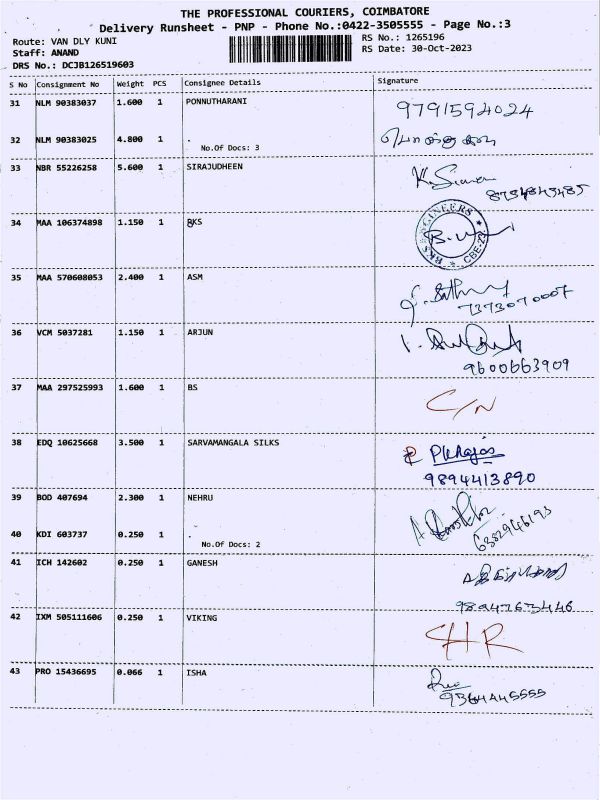 THE PROFESSIONAL COURIERS, COIMBATORE
Delivery Runsheet - PNP - Phone No.:0422-3505555 - Page No.:3
Route: VAN DLY KUNI
RS No.: 1265196
Staff: ANAND
RS Date: 30-Oct-2023
DRS No.: DCJB126519603
S No Consignment No Weight PCS Consignee Details Signature
31 NLM 90383037 1.600 1 PONNUTHARANI 9791594024
32 NLM 90383025 4.800 1
No.Of Docs: 3
33 NBR 55226258 5.600 1 SIRAJUDHEEN
34 MAA 106374898 1.150 1 BKS
35 MAA 570608053 2.400 1 ASM
7373070007
36 VCM 5037281 1.150 1 ARJUN
9600663909
37 MAA 297525993 1.600 1 BS C/N
38 EDQ 10625668 3.500 1 SARVAMANGALA SILKS
9894413890
39 BOD 407694 2.300 1 NEHRU
6382946193
40 KDI 603737 0.250 1
No.Of Docs: 2
41 ICH 142602 0.250 1 GANESH
42 IXM 505111606 0.250 1 VIKING
43 PRO 15436695 0.066 1 ISHA